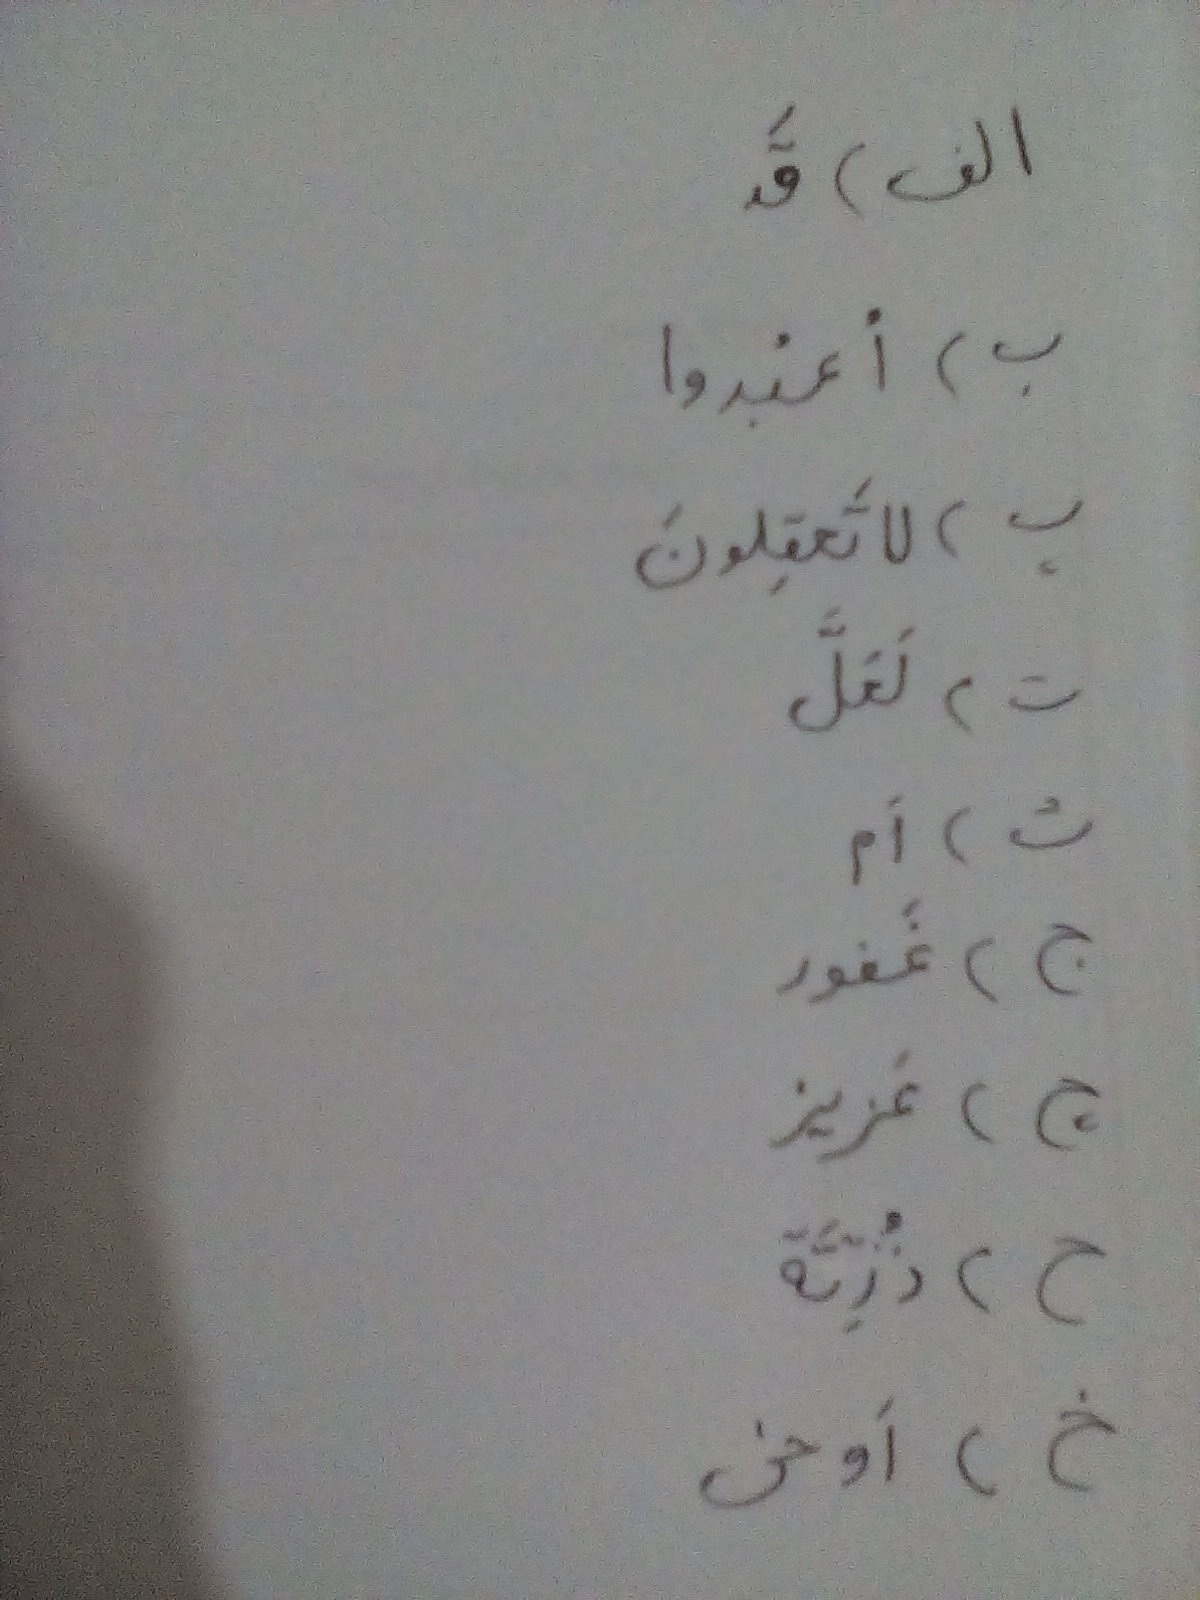 الف) قَد
ب) أعبُدوا
پ) لا تَعقِلونَ
ت) لَعَلَّ
ث) أَم
ج) غَفور
چ) عَزیز
ح) ذُرِّیَّة
خ) أَوحی